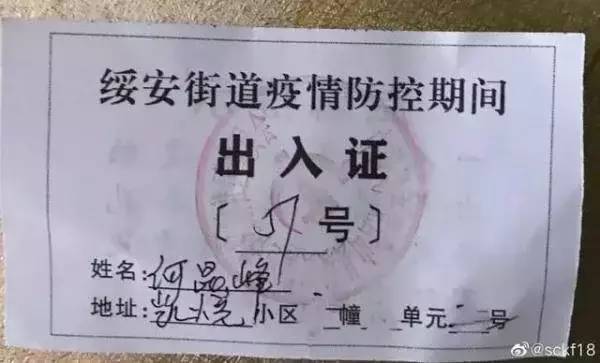 绥安街道疫情防控期间
出入证
〔 51 号〕
姓名:何晶峰
地址:凯悦小区 幢 单元 号
@sckf18